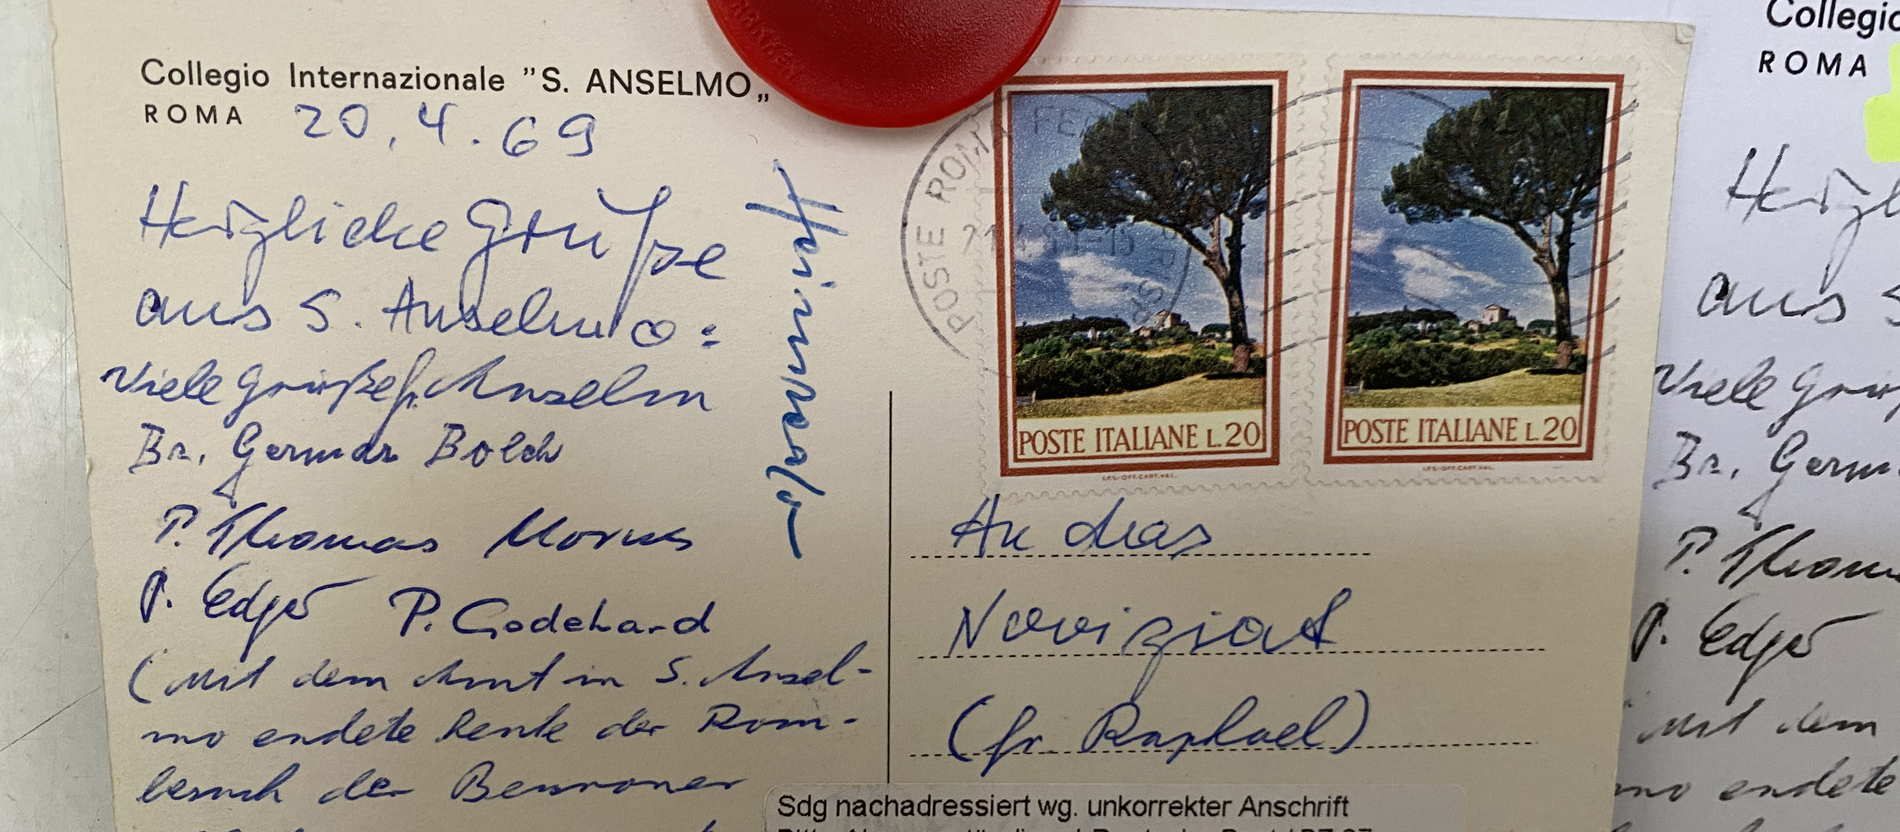 Collegio Internazionale "S. ANSELMO„
ROMA
20.4.69
Herzliche Grüße
aus S. Anselmo:
Viele Grüße fr. Anselm
Br. German Bolch
P. Thomas Morus
P. Edgar P. Godehard
(Mit dem Amt in S. Ansel-
mo endete heute der Rom-
besuch der Beuroner
POSTE ROMA FE
POSTE ITALIANE L.20
I.P.S.-OFF.CART.VAL.
POSTE ITALIANE L.20
I.P.S.-OFF.CART.VAL.
An das
Noviziat
(fr. Raphael)
Sdg nachadressiert wg. unkorrekter Anschrift
Collegio
ROMA
Herzl
aus S
Viele Grüß
Br. Germ
P. Thoma
P. Edgar
Mit dem
mo endete